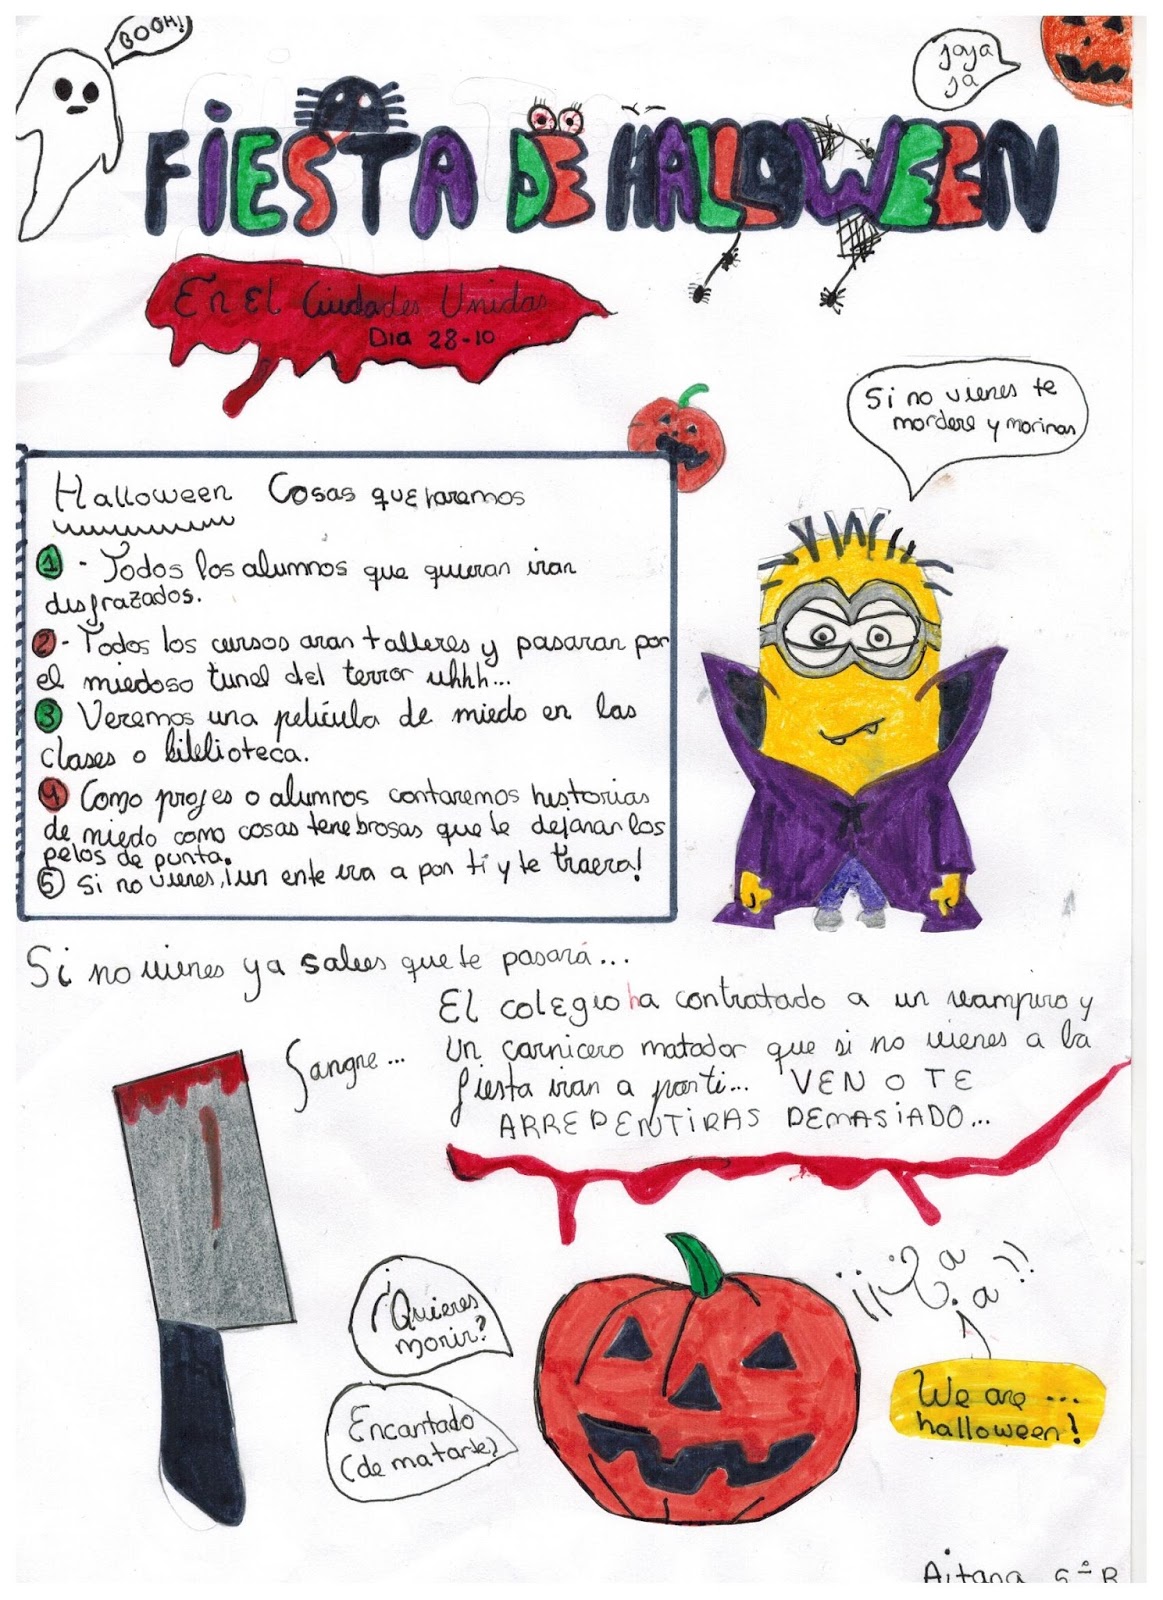 BOOH!
jaja
ja
FiESTA DE HALLOWEEN
En El Ciudades Unidas
Dia 28-10
Si no vienes te
mordere y moriras
Halloween Cosas que haremos
1 - Todos los alumnos que quieran iran
disfrazados.
2 - Todos los cursos aran talleres y pasaran por
el miedoso tunel del terror uhhh...
3 Veremos una película de miedo en las
clases o biblioteca.
4 Como profes o alumnos contaremos historias
de miedo como cosas tenebrosas que te dejaran los
pelos de punta.
5 Si no vienes, ¡un ente ira a por ti y te traera!
Si no vienes ya sabes que te pasará...
El colegio ha contratado a un vampiro y
un carnicero matador que si no vienes a la
fiesta iran a por ti... VEN O TE
ARREPENTIRAS DEMASIADO...
Sangre...
¿Quieres
morir?
Encantado
(de matarte)
We are ...
halloween!
Aitana 5º B